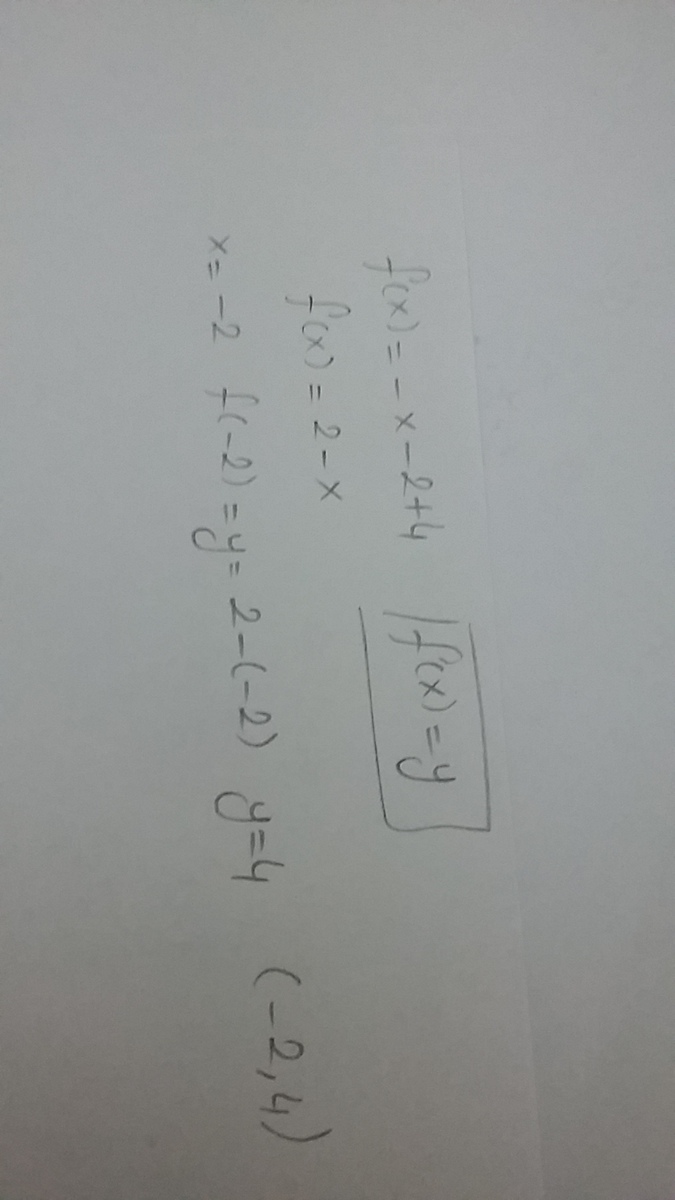 f(x) = -x-2+4 f(x) = y
f(x) = 2-x
x = -2 f(-2) = y = 2-(-2) y = 4 (-2,4)